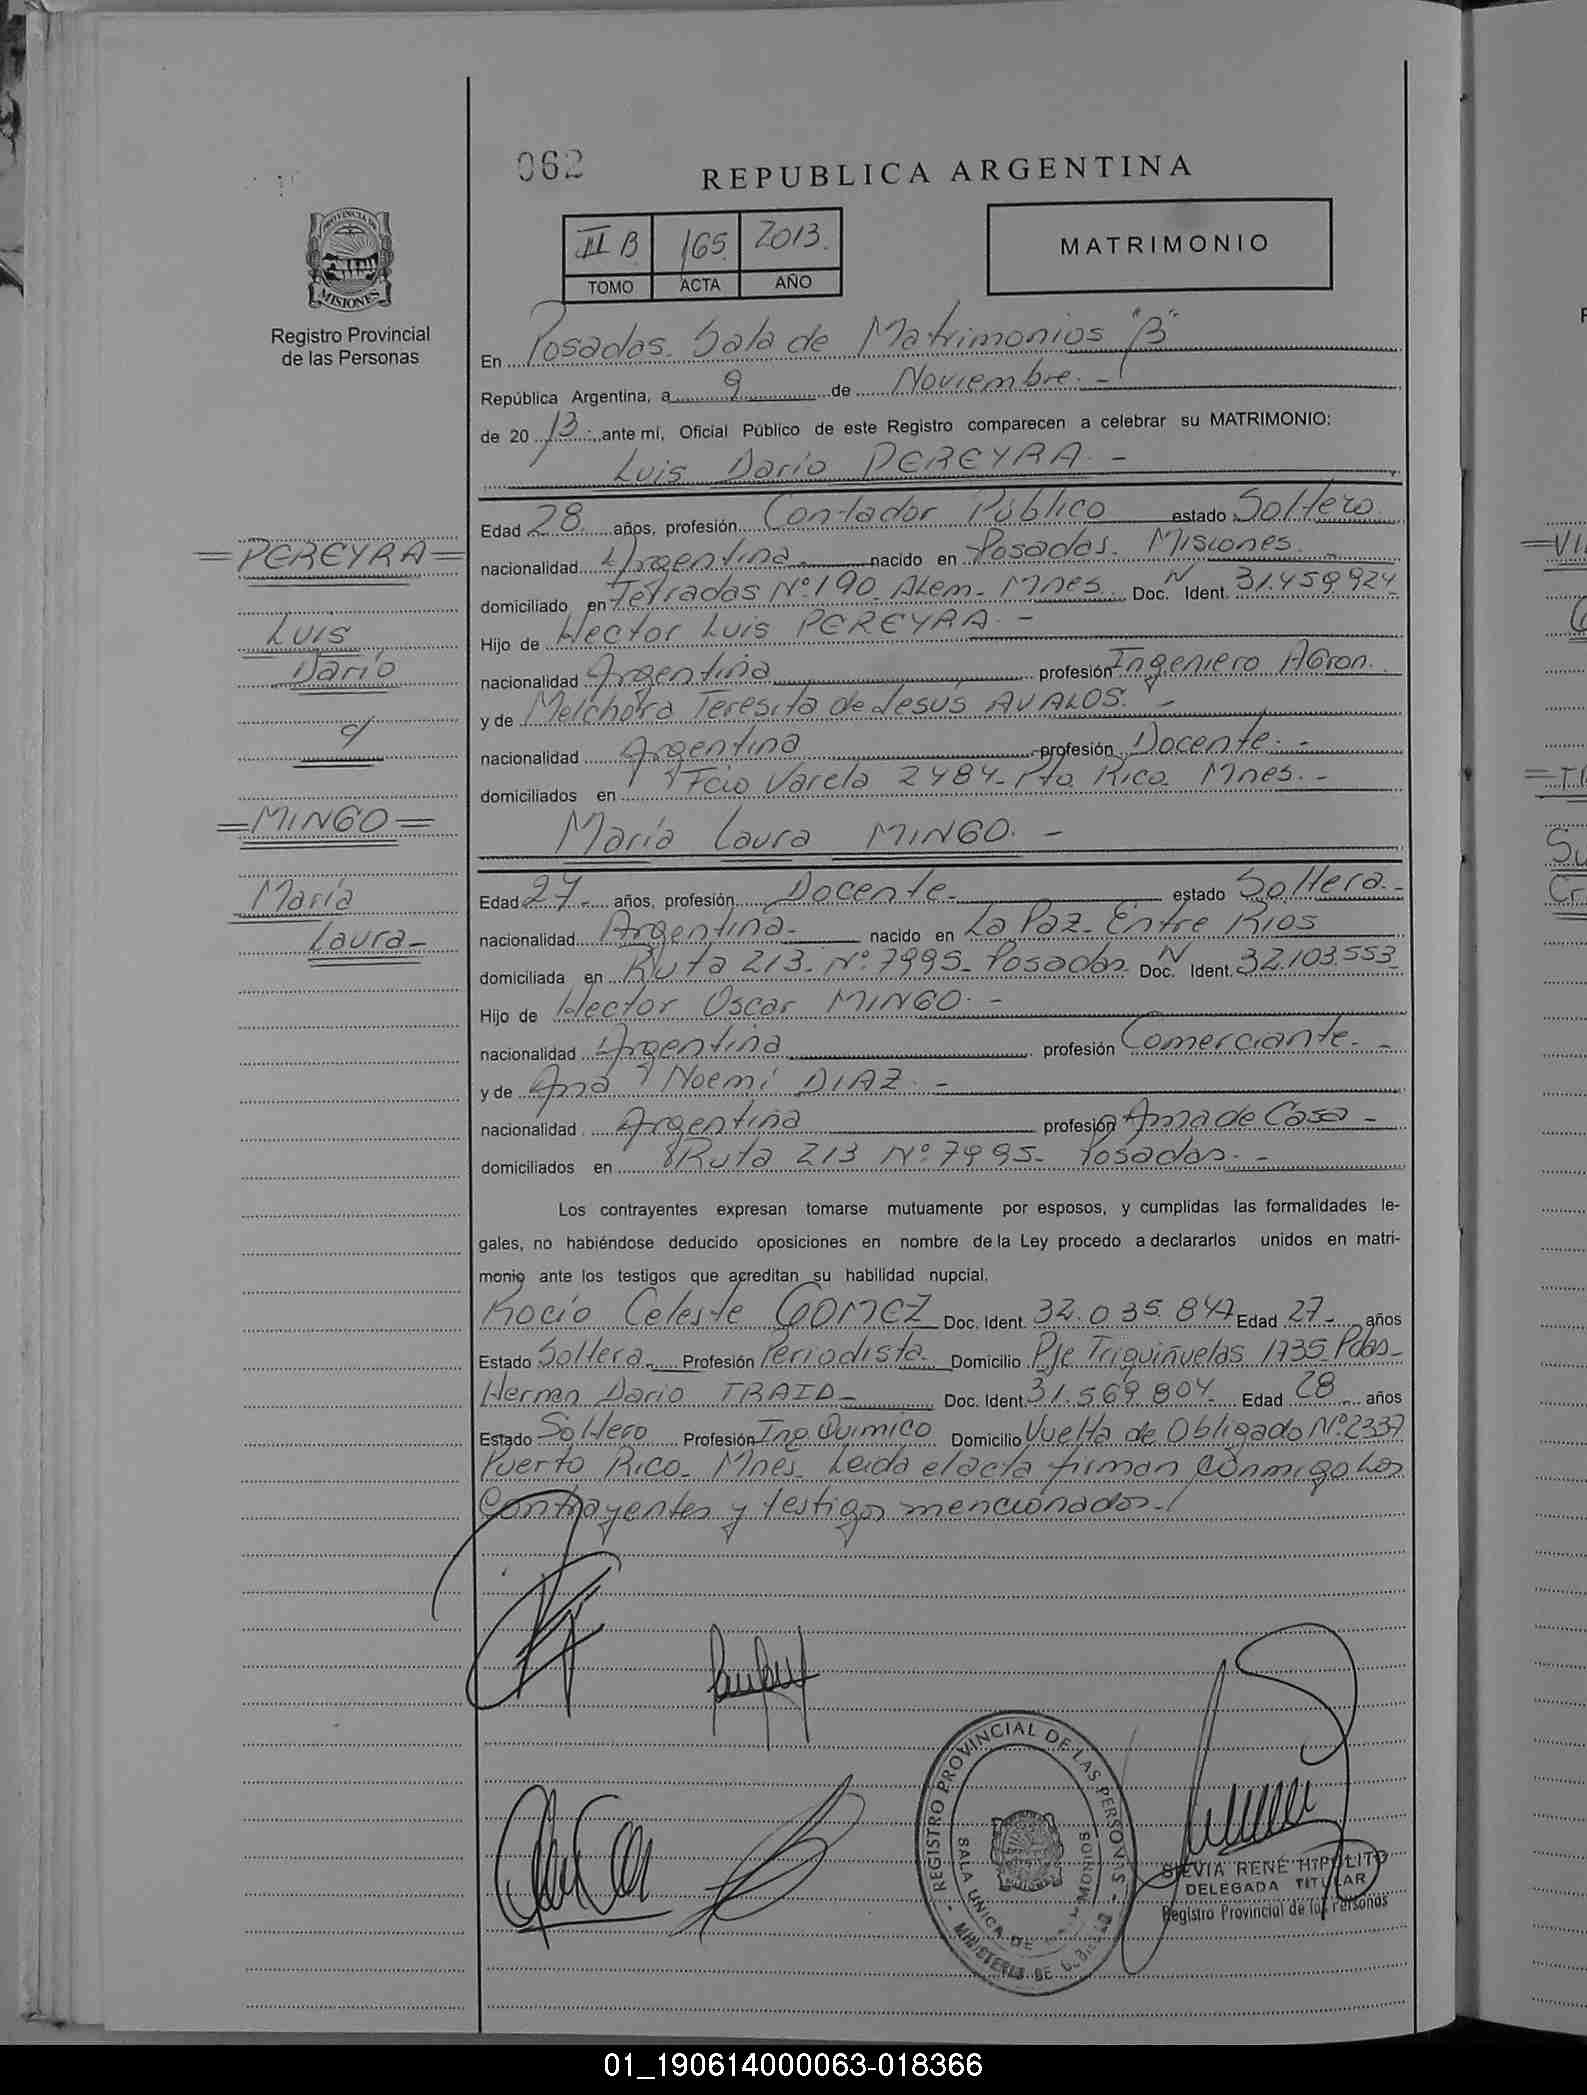 062
REPUBLICA ARGENTINA
PROVINCIA DE
MISIONES
Registro Provincial
de las Personas
II B 165 2013.
TOMO ACTA AÑO
MATRIMONIO
En Posadas. Sala de Matrimonios "B"
República Argentina, a 9 de Noviembre. -
de 20 13 ante mí, Oficial Público de este Registro comparecen a celebrar su MATRIMONIO:
Luis Dario PEREYRA. -
Edad 28 años, profesión Contador Público estado Soltero
nacionalidad Argentina. nacido en Posadas. Misiones. -
domiciliado en Tetradas Nº 190. Alem. Mnes. Doc. N Ident. 31.459924
Hijo de Hector Luis PEREYRA. -
nacionalidad Argentina profesión Ingeniero Agron.
y de Melchora Teresita de Jesús AVALOS. -
nacionalidad Argentina profesión Docente. -
domiciliados en Fcio Varela 2484- Pto. Rico. Mnes. -
María Laura MINGO. -
Edad 27 - años, profesión Docente- estado Soltera.-
nacionalidad Argentina- nacido en La Paz- Entre Rios
domiciliada en Ruta 213. Nº 7995- Posadas. Doc. N Ident. 32.103.553
Hijo de Hector Oscar MINGO. -
nacionalidad Argentina profesión Comerciante. -
y de Ana Noemi DIAZ. -
nacionalidad Argentina profesión Ama de Casa -
domiciliados en Ruta 213 Nº 7995- Posadas. -
Los contrayentes expresan tomarse mutuamente por esposos, y cumplidas las formalidades le-
gales, no habiéndose deducido oposiciones en nombre de la Ley procedo a declararlos unidos en matri-
monio ante los testigos que acreditan su habilidad nupcial,
Rocio Celeste GOMEZ Doc. Ident. 32.035.847 Edad 27- años
Estado Soltera Profesión Periodista. Domicilio Pje Triquiñuelas 1735- Pdas-
Hernan Dario TRAID- Doc. Ident. 31.569.804. Edad 28 años
Estado Soltero Profesión Ing. Quimico Domicilio Vuelta de Obligado Nº 2337
Puerto Rico. Mnes. Leida el acta firman conmigo los
Contrayentes y testigos mencionados.-
=PEREYRA=
Luis
Darío
c/
=MINGO=
María
Laura-
REGISTRO PROVINCIAL DE LAS PERSONAS
SALA UNICA DE MATRIMONIOS
- MINISTERIO DE GOBIERNO -
SILVIA RENÉ HIPOLITO
DELEGADA TITULAR
Registro Provincial de las Personas
01_190614000063-018366